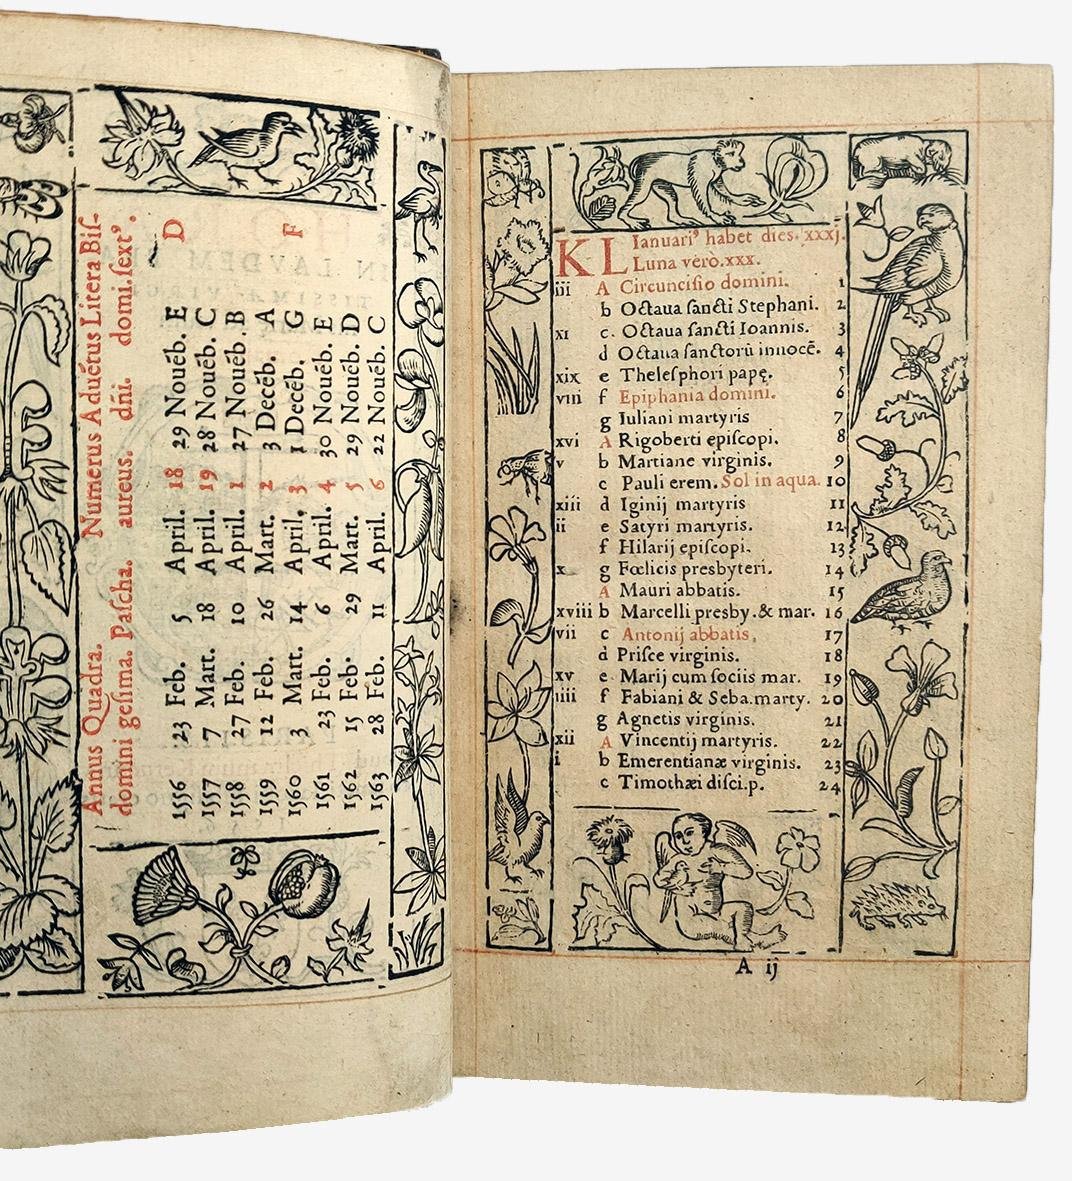 Annus Quadra. Numerus Aduẽtus Litera Biſ-
domini geſima. Paſcha. aureus. dñi. domi. ſext⁹.
1556 23 Feb. 5 April. 18 29 Nouẽb. E D
1557 7 Mart. 18 April. 19 28 Nouẽb. C
1558 27 Feb. 10 April. 1 27 Nouẽb. B
1559 12 Feb. 26 Mart. 2 3 Decẽb. A
1560 3 Mart. 14 April. 3 1 Decẽb. G F
1561 23 Feb. 6 April. 4 30 Nouẽb. E
1562 15 Feb. 29 Mart. 5 29 Nouẽb. D
1563 28 Feb. 11 April. 6 22 Nouẽb. C
KL Ianuari⁹ habet dies. xxxj.
Luna vero. xxx.
iii A Circunciſio domini. 1
b Octaua ſancti Stephani. 2
xi c Octaua ſancti Ioannis. 3
d Octaua ſanctorũ innocẽ. 4
xix e Theleſphori papę. 5
viii f Epiphania domini. 6
g Iuliani martyris 7
xvi A Rigoberti epiſcopi. 8
v b Martiane virginis. 9
c Pauli erem. Sol in aqua. 10
xiii d Iginij martyris 11
ii e Satyri martyris. 12
f Hilarij epiſcopi. 13
x g Fœlicis presbyteri. 14
A Mauri abbatis. 15
xviii b Marcelli presby. & mar. 16
vii c Antonij abbatis, 17
d Priſce virginis. 18
xv e Marij cum ſociis mar. 19
iiii f Fabiani & Seba. marty. 20
g Agnetis virginis. 21
xii A Vincentij martyris. 22
i b Emerentianæ virginis. 23
c Timothæi diſci. p. 24
A ij